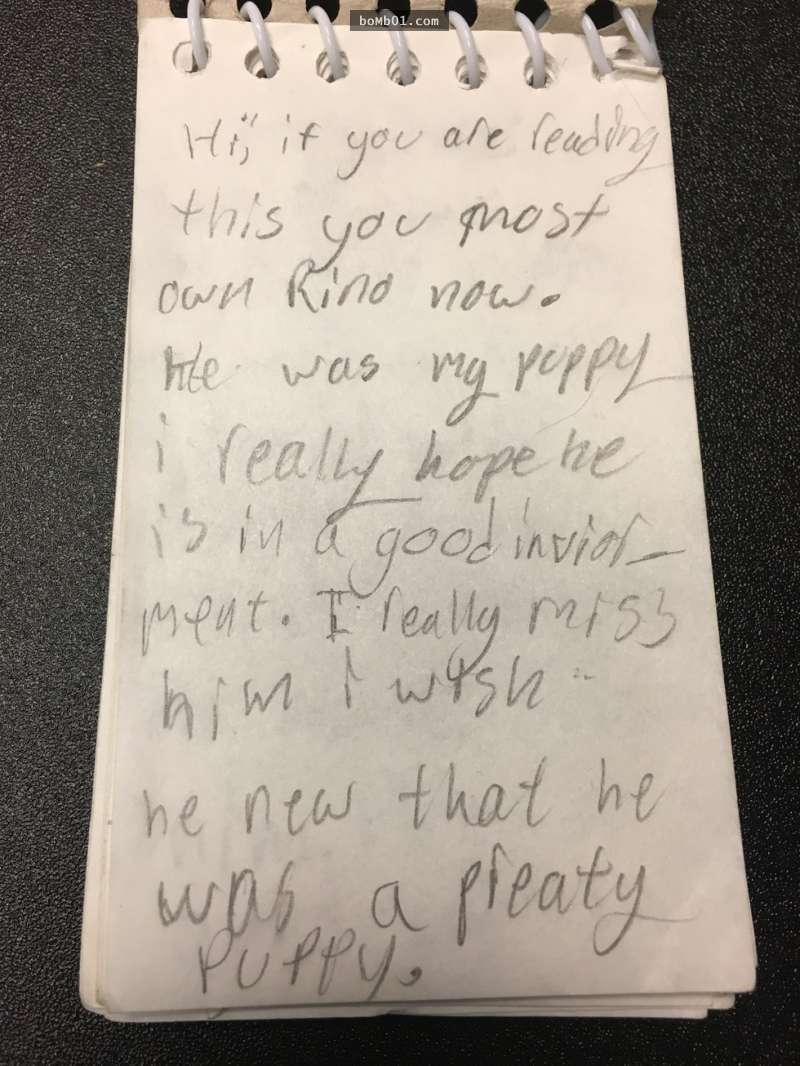 boMb01.com
Hi, if you are reading
this you most
own Rino now.
He was my puppy
i really hope he
is in a good invior-
ment. I really miss
him i wish
he new that he
was a preaty
puppy.